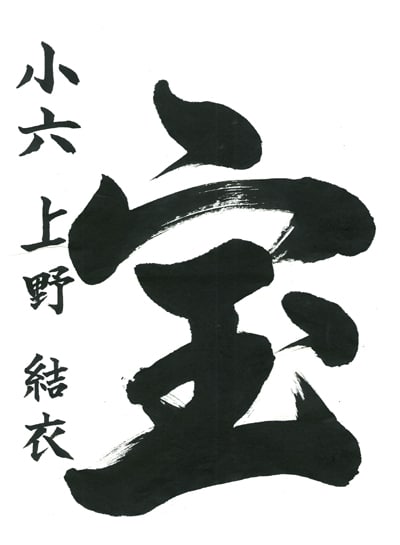 宝
小六 上野 結衣